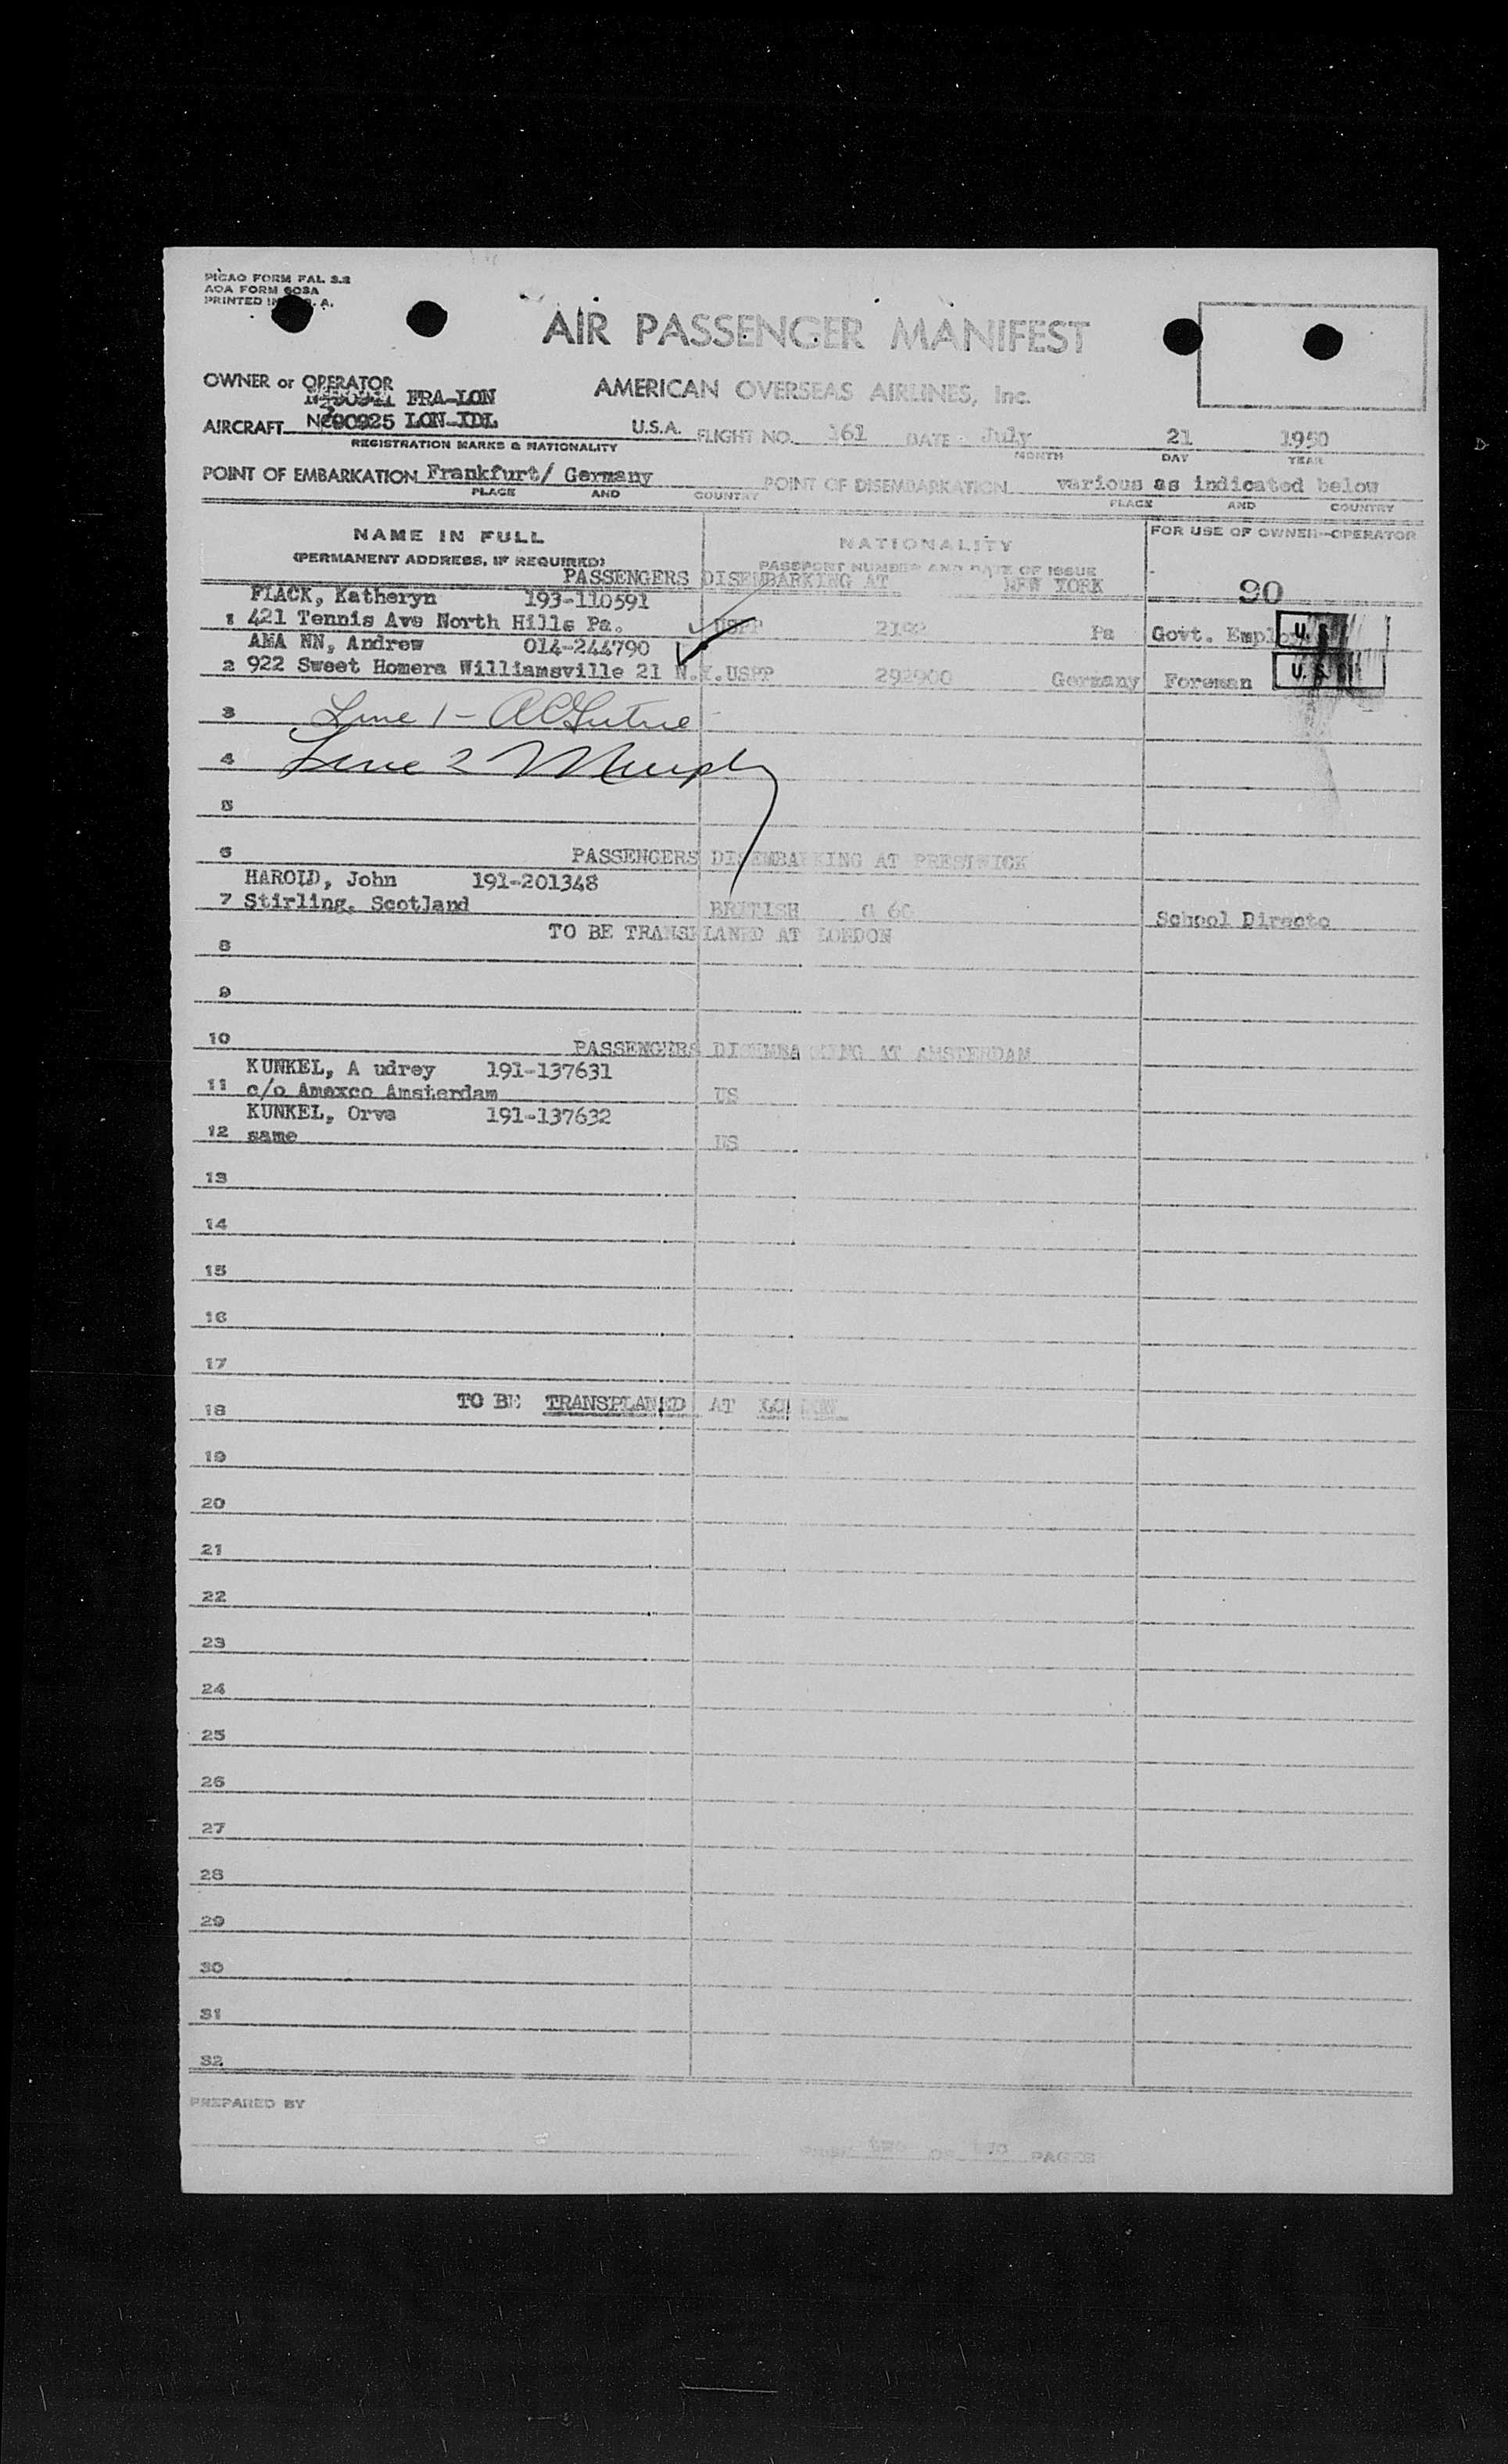 PICAO FORM FAL 3.2
AOA FORM 603A
PRINTED IN U.S. A.
AIR PASSENGER MANIFEST
OWNER or OPERATOR
AMERICAN OVERSEAS AIRLINES, Inc.
FRA-LON
AIRCRAFT NC90925 LON-IDL U.S.A. FLIGHT NO. 161 DATE July 21 1950
REGISTRATION MARKS & NATIONALITY MONTH DAY YEAR
POINT OF EMBARKATION Frankfurt/ Germany POINT OF DISEMBARKATION various as indicated below
PLACE AND COUNTRY PLACE AND COUNTRY
NAME IN FULL NATIONALITY FOR USE OF OWNER-OPERATOR
(PERMANENT ADDRESS, IF REQUIRED) PASSPORT NUMBER AND DATE OF ISSUE
PASSENGERS DISEMBARKING AT NEW YORK 90
FLACK, Katheryn 193-110591
1 421 Tennis Ave North Hills Pa. USPP Pa Govt. Employ U.S.
AMA NN, Andrew 014-244790
2 922 Sweet Homera Williamsville 21 N.Y. USPP 292900 Germany Foreman U.S.
3 Line 1 -
4 Line 2 Murphy
5
6 PASSENGERS DISEMBARKING AT PRESTWICK
HAROLD, John 191-201348
7 Stirling, Scotland BRITISH School Directo
TO BE TRANSPLANED AT LONDON
8
9
10 PASSENGERS DISEMBARKING AT AMSTERDAM
KUNKEL, A udrey 191-137631
11 c/o Amexco Amsterdam US
KUNKEL, Orva 191-137632
12 same US
13
14
15
16
17
18 TO BE TRANSPLANED AT LONDON
19
20
21
22
23
24
25
26
27
28
29
30
31
32
PREPARED BY
two OF two PAGES